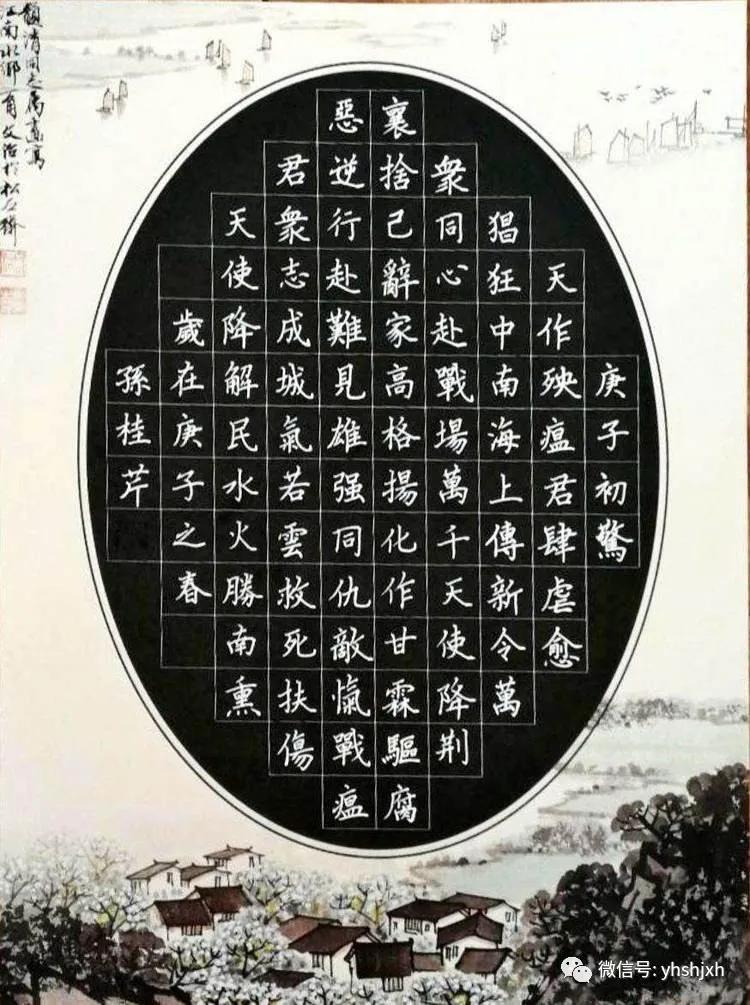 庚子初驚
天作殃瘟君肆虐愈
猖狂中南海上傳新令萬
衆同心赴戰場萬千天使降荆
襄捨己辭家高格揚化作甘霖驅腐
惡逆行赴難見雄强同仇敵愾戰瘟
君衆志成城氣若雲救死扶傷
天使降解民水火勝南熏
歲在庚子之春
孫桂芹
清同志屬畫寫
江南水鄉 文治於松石齋
微信号: yhshjxh